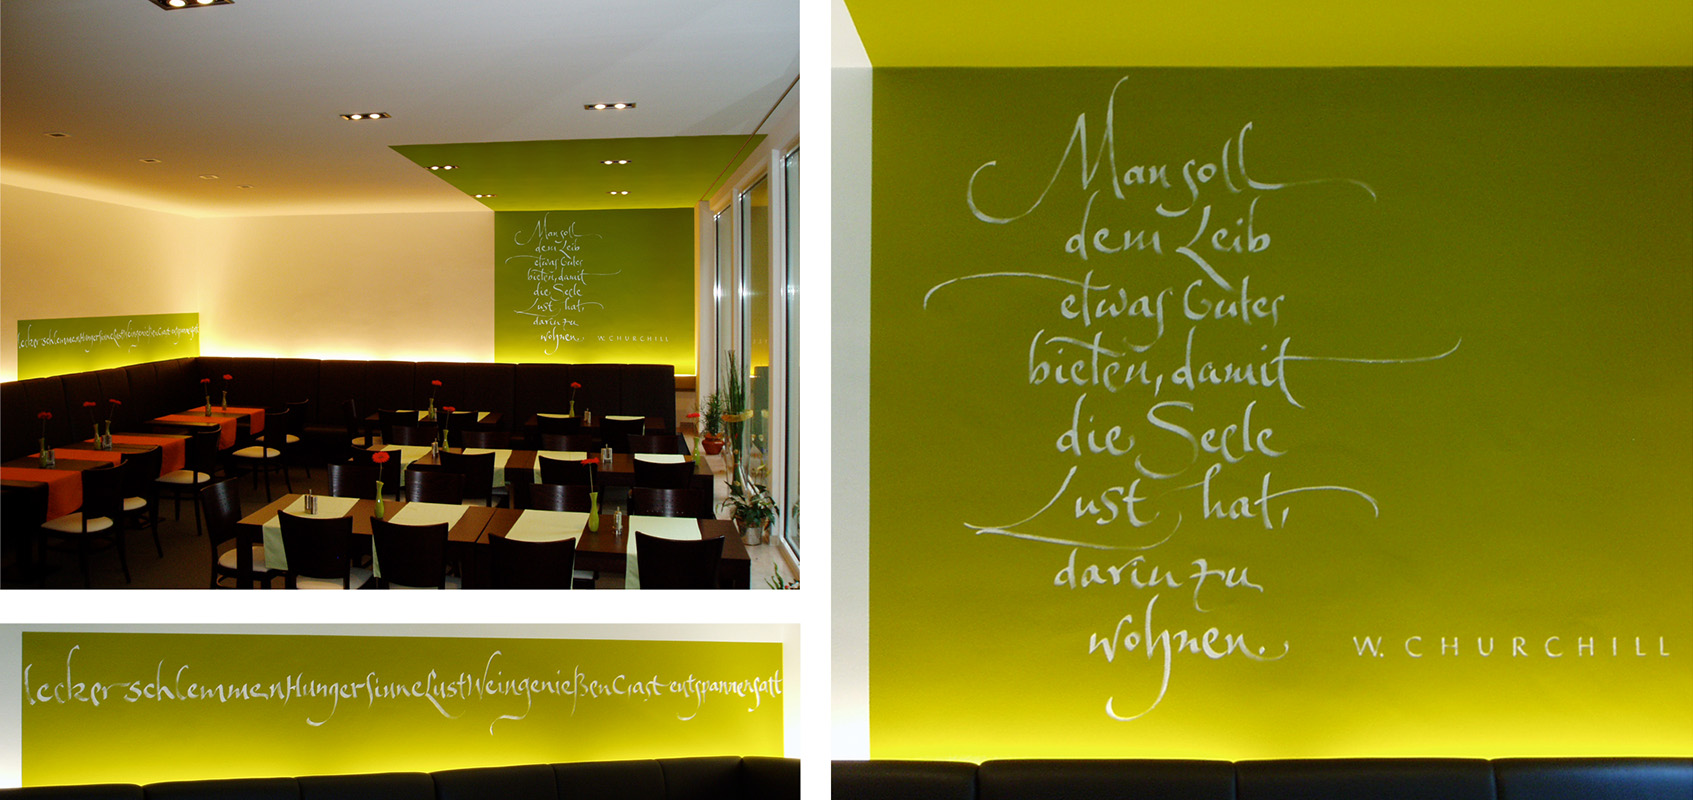 Man soll
dem Leib
etwas Gutes
bieten, damit
die Seele
Lust hat,
darin zu
wohnen. W. CHURCHILL
lecker schlemmen Hunger Sinne Lust Wein genießen Gast entspannen satt
Man soll
dem Leib
etwas Gutes
bieten, damit
die Seele
Lust hat,
darin zu
wohnen. W. CHURCHILL
lecker schlemmen Hunger Sinne Lust Wein genießen Gast entspannen satt